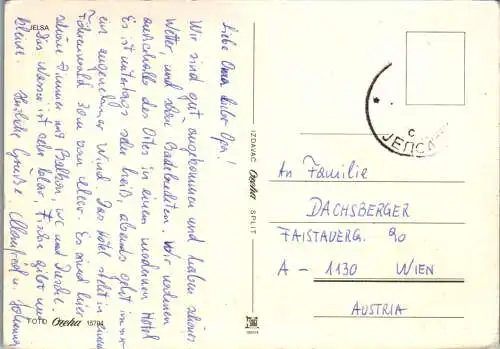 JELSA
Liebe Oma, lieber Opa!
Wir sind gut angekommen und haben schönes
Wetter, und schon Badefreuden. Wir wohnen
außerhalb des Ortes in einem modernen Hotel
Es ist untertags sehr heiß, abends geht immer
ein angenehmer Wind. Das Hotel steht in einem
Föhrenwald 30 m vom Meer. Es sind hier
schöne Zimmer mit Balkon, WC und Dusche.
Das Wasser ist sehr klar, Fische gibt nur
kleine. Herzliche Grüße Manfred u.
FOTO Oneha 157
IZDAVAC Oneha SPLIT
ЈЕЛСА
An Familie
DACHSBERGER
FAISTAUERG. 90
A - 1130 WIEN
AUSTRIA